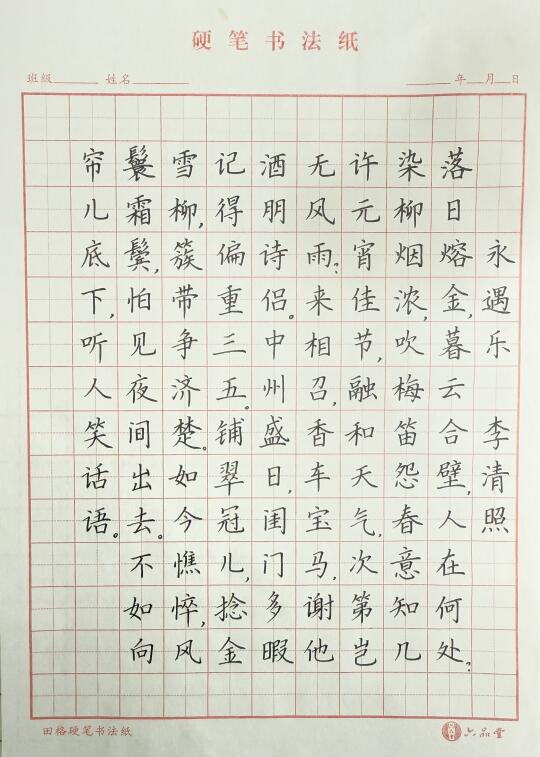 硬笔书法纸
班级 姓名 年 月 日
永遇乐 李清照
落日熔金,暮云合壁,人在何处?
染柳烟浓,吹梅笛怨,春意知几
许元宵佳节,融和天气,次第岂
无风雨?来相召,香车宝马,谢他
酒朋诗侣。中州盛日,闺门多暇
记得偏重三五。铺翠冠儿,捻金
雪柳,簇带争济楚。如今憔悴,风
鬟霜鬓,怕见夜间出去。不如向
帘儿底下,听人笑话语。
田格硬笔书法纸
六品堂